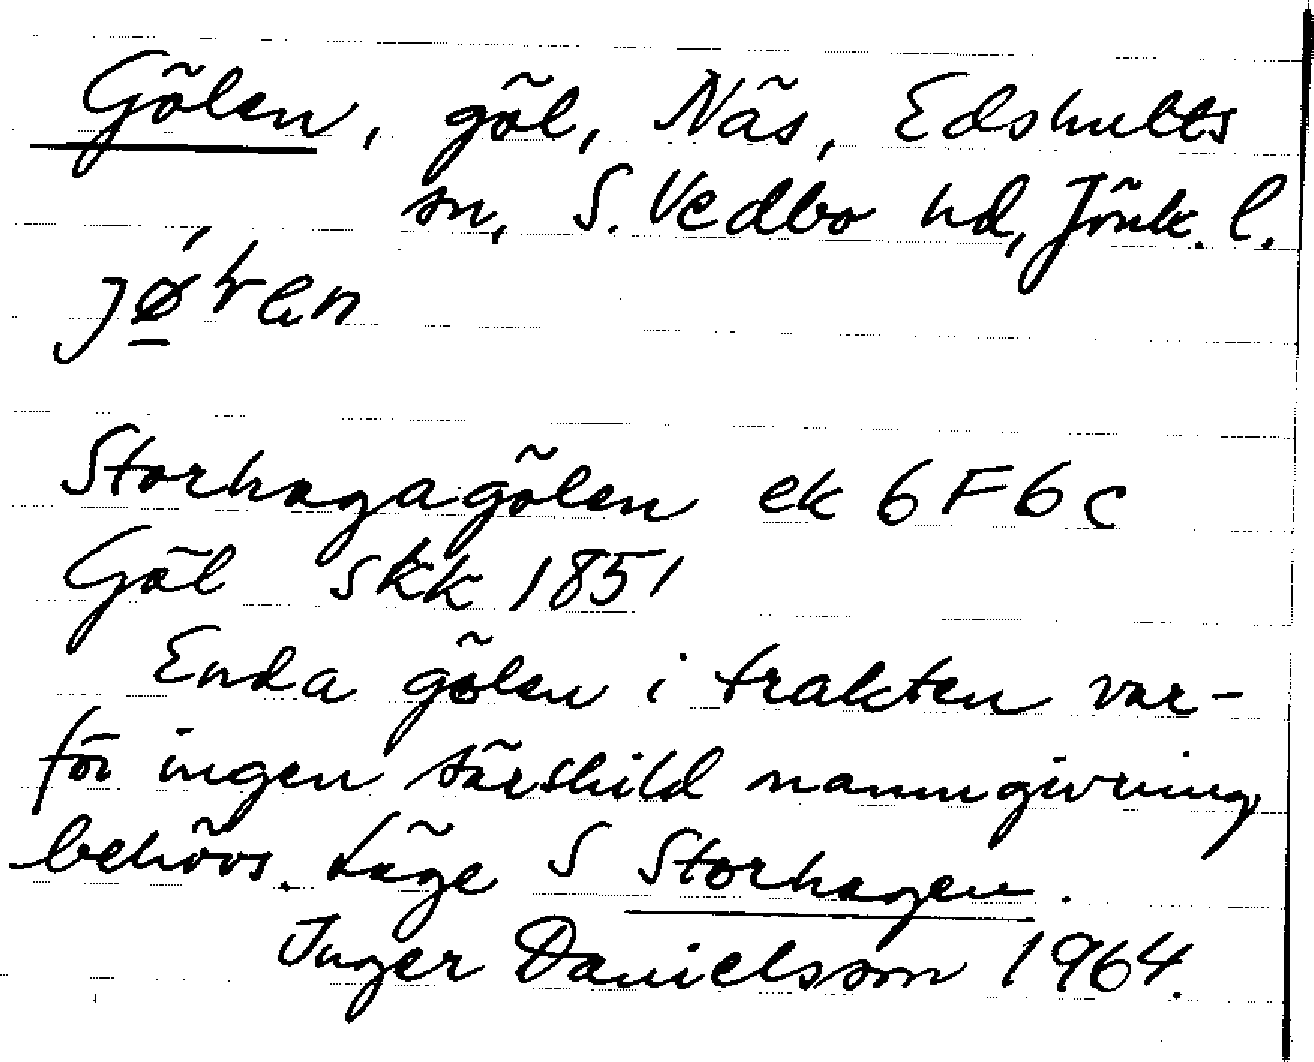 Gölen, göl, Näs, Edshults
sn, S. Vedbo hd, Jönk. l.
Storhagagölen ek 6F6c
Göl skk 1851
Enda gölen i trakten var-
för ingen särskild namngivning
behövs. Läge S Storhagen.
Inger Danielsson 1964.